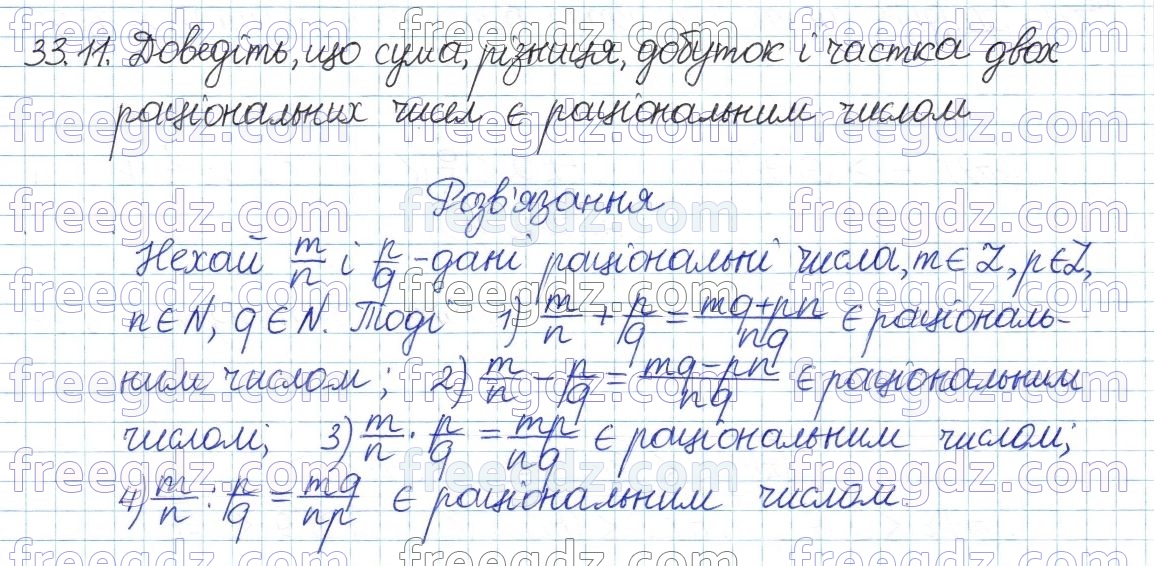 33.11. Доведіть, що сума, різниця, добуток і частка двох
раціональних чисел є раціональним числом
Розв'язання
Нехай m/n і p/q - дані раціональні числа, m ∈ Z, p ∈ Z,
n ∈ N, q ∈ N. Тоді 1) m/n + p/q = (mq+pn)/nq є раціональ-
ним числом; 2) m/n - p/q = (mq-pn)/nq є раціональним
числом; 3) m/n · p/q = mp/nq є раціональним числом;
4) m/n : p/q = mq/np є раціональним числом.
freegdz.com